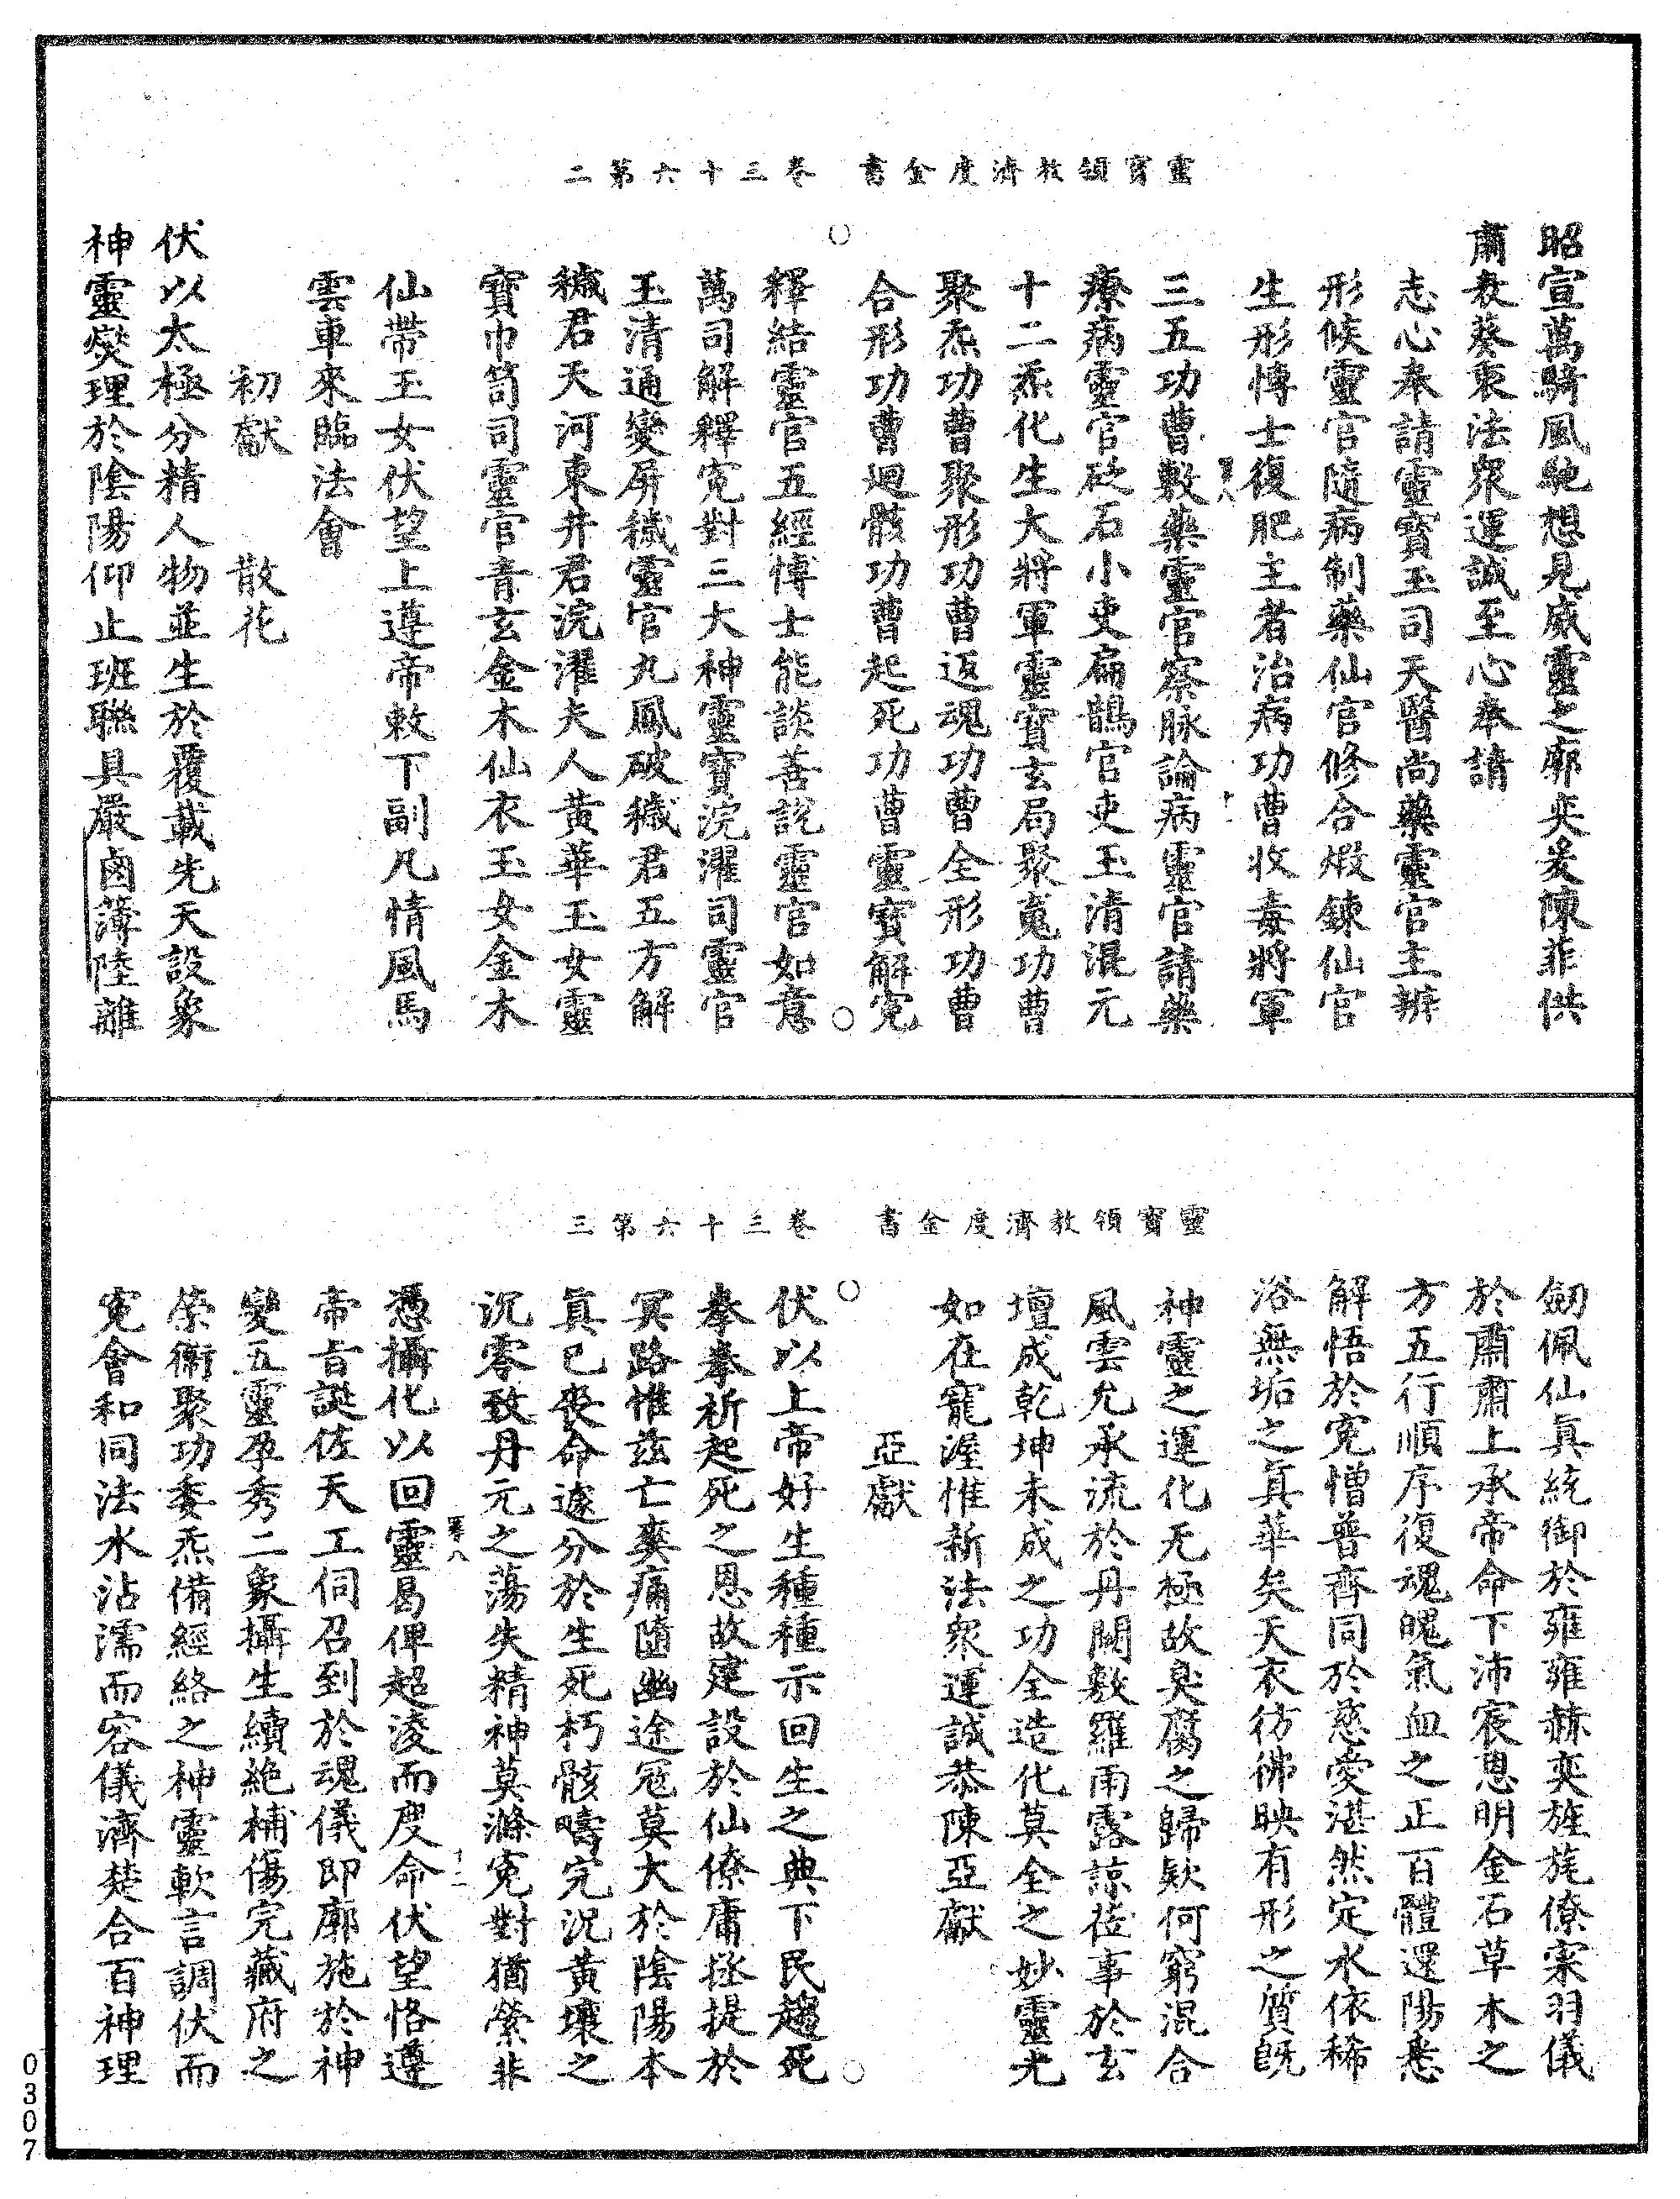 靈寶領教濟度金書　卷三十六第二
昭宣萬騎風馳想見威靈之廓奕爰陳菲供
肅教葵衷法衆運誠至心奉請
志心奉請靈寶玉司天醫尚藥靈官主辨
形候靈官隨病制藥仙官修合煅鍊仙官
生形博士復肥主者治病功曹收毒將軍
三五功曹數藥靈官察脉論病靈官請藥
療病靈官砭石小吏扁鵲官吏玉清混元
十二炁化生大將軍靈寶玄局聚嵬功曹
聚炁功曹聚形功曹返魂功曹全形功曹
合形功曹廻骸功曹起死功曹靈寶解寃
釋結靈官五經博士能談善說靈官如意
萬司解釋寃對三大神靈寶浣濯司靈官
玉清通變屏穢靈官九鳳破穢君五方解
穢君天河東井君浣濯夫人黃華玉女靈
寶巾笥司靈官青玄金木仙衣玉女金木
仙帶玉女伏望上遵帝敕下副凡情風馬
雲車來臨法會
初獻　散花
伏以太極分精人物並生於覆載先天設象
神靈爕理於陰陽仰止班聯具嚴鹵簿陸離
靈寶領教濟度金書　卷三十六第三
劒佩仙眞統御於雍雍赫奕旌旄僚寀羽儀
於肅肅上承帝命下沛宸恩明金石草木之
方五行順序復魂魄氣血之正百體還陽悉
解悟於寃憎普齊同於慈愛湛然定水依稀
浴無垢之眞華矣天衣彷彿映有形之質旣
神靈之運化无極故臭腐之歸欵何窮混合
風雲允承流於丹闕敷羅雨露諒蒞事於玄
壇成乾坤未成之功全造化莫全之妙靈光
如在寵渥惟新法衆運誠恭陳亞獻
亞獻
伏以上帝好生種種示回生之典下民趨死
拳拳祈起死之恩故建設於仙僚庸拯提於
冥路惟茲亡爽痛墮幽途寃莫大於陰陽本
眞已喪命遽分於生死朽骸疇完況黃壤之
沉零致丹元之蕩失精神莫滌寃對猶縈非
憑攝化以回靈曷俾超淩而度命伏望恪遵
帝旨誕佐天工伺召到於魂儀即廓施於神
變五靈孕秀二象攝生續絶補傷完藏府之
榮衞聚功委炁備經絡之神靈軟言調伏而
寃會和同法水沾濡而容儀濟楚合百神理
0307